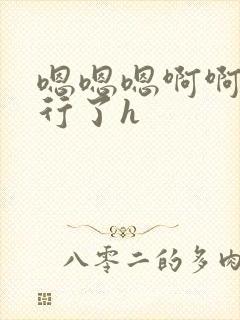 嗯嗯嗯啊啊
行了h
八零二的多肉